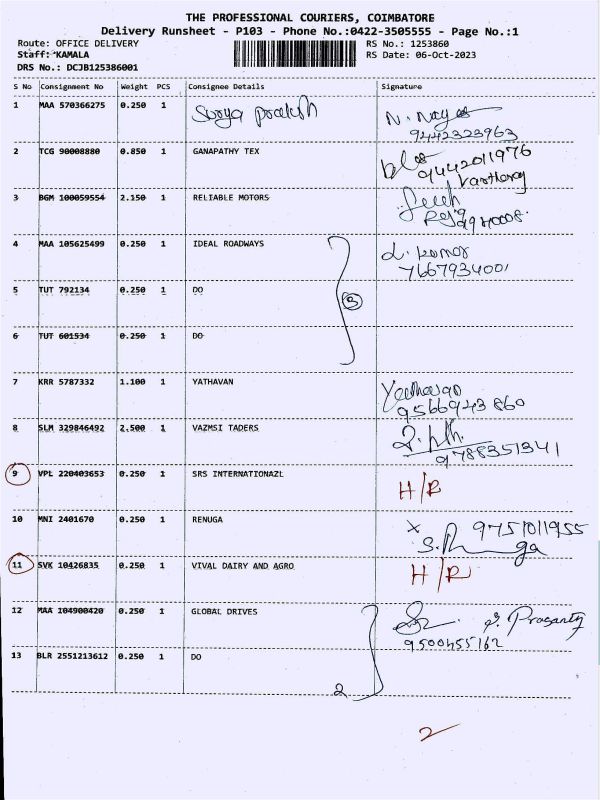 THE PROFESSIONAL COURIERS, COIMBATORE
Delivery Runsheet - P103 - Phone No.:0422-3505555 - Page No.:1
Route: OFFICE DELIVERY RS No.: 1253860
Staff: KAMALA RS Date: 06-Oct-2023
DRS No.: DCJB125386001
S No Consignment No Weight PCS Consignee Details Signature
1 MAA 570366275 0.250 1 Surya prakash
9442323963
2 TCG 90008880 0.850 1 GANAPATHY TEX 9442011976
3 BGM 100059554 2.150 1 RELIABLE MOTORS
4 MAA 105625499 0.250 1 IDEAL ROADWAYS
7667934001
5 TUT 792134 0.250 1 DO 3
6 TUT 601534 0.250 1 DO
7 KRR 5787332 1.100 1 YATHAVAN
9566943860
8 SLM 329846492 2.500 1 VAZMSI TADERS
9788351341
9 VPL 220403653 0.250 1 SRS INTERNATIONAZL H/R
10 MNI 2401670 0.250 1 RENUGA 9751011955
11 SVK 10426835 0.250 1 VIVAL DAIRY AND AGRO H/R
12 MAA 104900420 0.250 1 GLOBAL DRIVES
9500455162
13 BLR 2551213612 0.250 1 DO
2
2